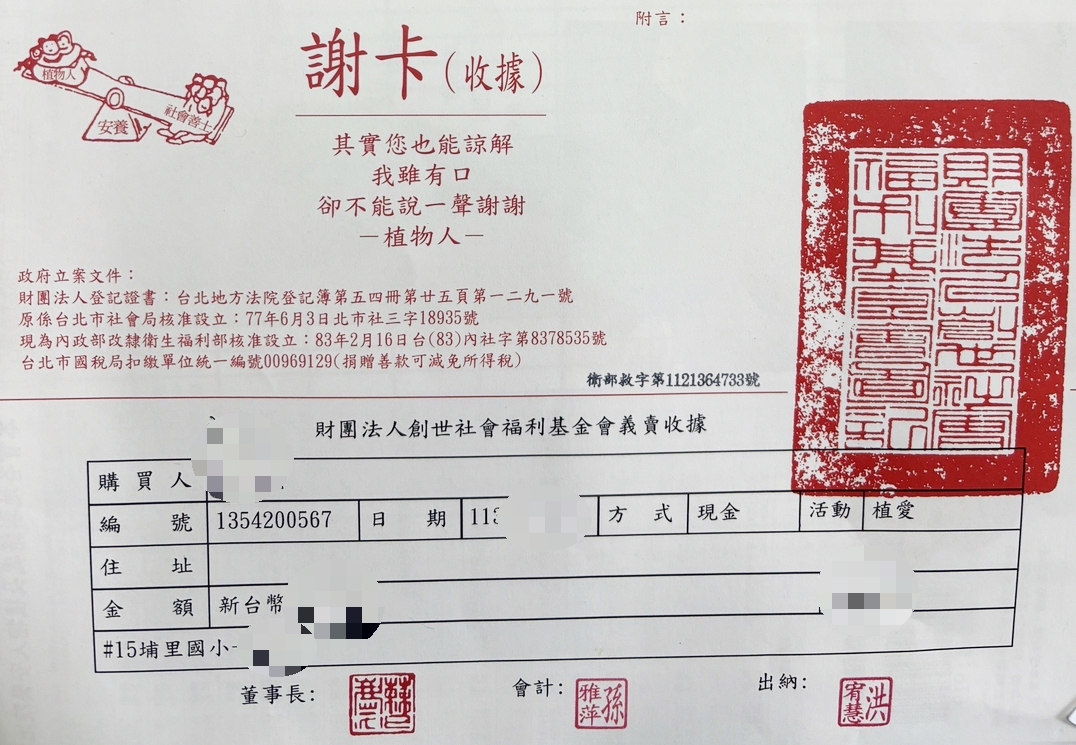 附言：
植物人
安養
社會善士
謝卡(收據)
其實您也能諒解
我雖有口
卻不能說一聲謝謝
—植物人—
政府立案文件：
財團法人登記證書：台北地方法院登記簿第五四冊第廿五頁第一二九一號
原係台北市社會局核准設立：77年6月3日北市社三字18935號
現為內政部改隸衛生福利部核准設立：83年2月16日台(83)內社字第8378535號
台北市國稅局扣繳單位統一編號00969129(捐贈善款可減免所得稅)
衛部救字第1121364733號
財團法人創世社會福利基金會印
財團法人創世社會福利基金會義賣收據
購買人
編號 1354200567 日期 113 方式 現金 活動 植愛
住址
金額 新台幣
#15埔里國小-
董事長： 會計：孫雅萍 出納：洪宥慧